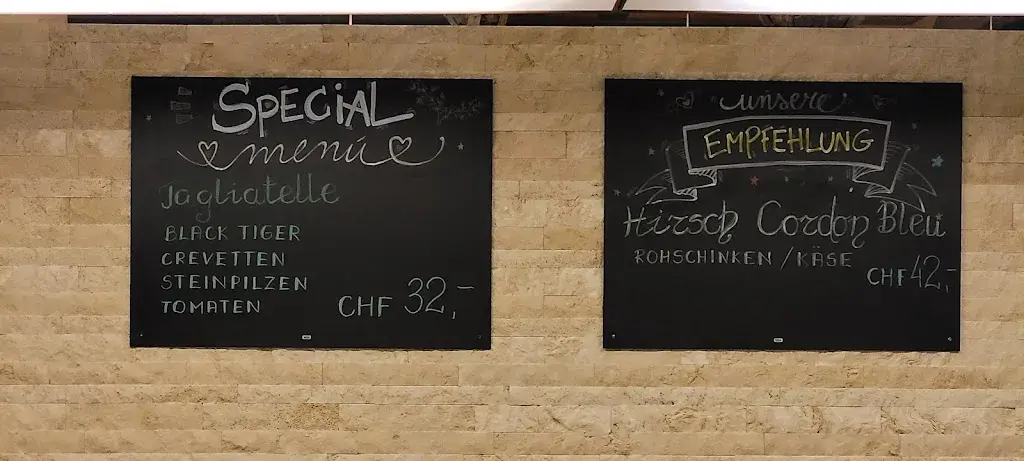 SPECIAL
menü
Tagliatelle
BLACK TIGER
CREVETTEN
STEINPILZEN
TOMATEN
CHF 32,-
unsere
EMPFEHLUNG
Hirsch Cordon Bleu
ROHSCHINKEN / KÄSE
CHF 42,-